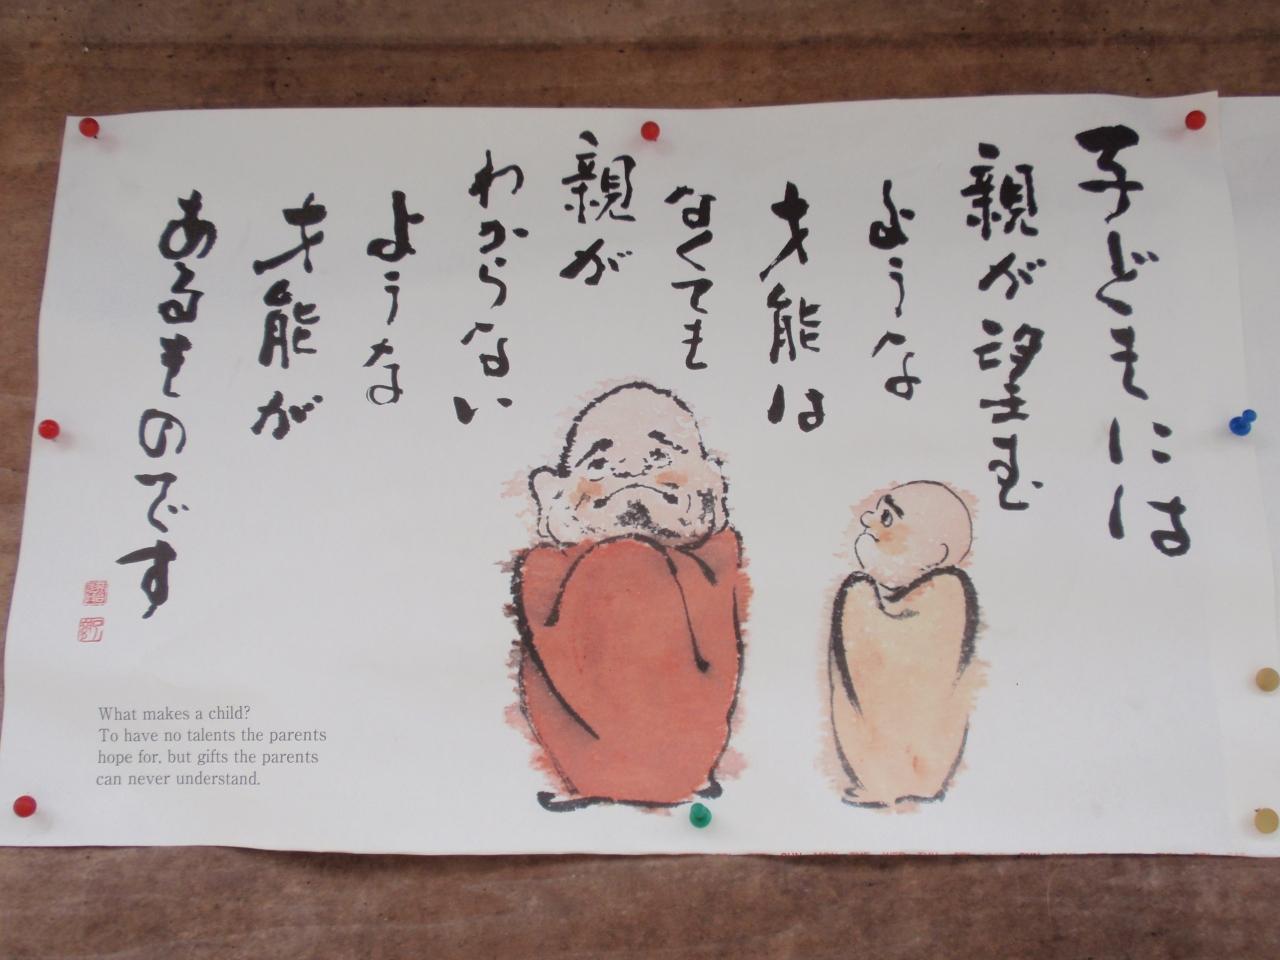 子どもには
親が望む
ような
才能は
なくても
親が
わからない
ような
才能が
あるものです
What makes a child?
To have no talents the parents
hope for, but gifts the parents
can never understand.